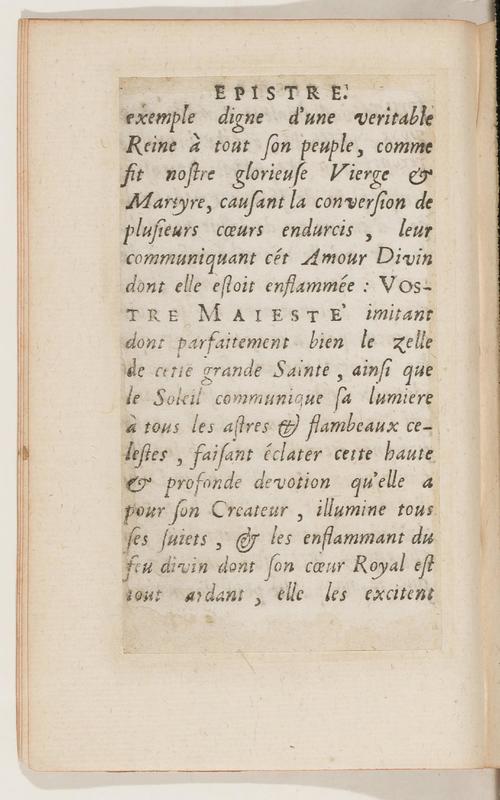 EPISTRE.
exemple digne d'une veritable
Reine à tout ſon peuple, comme
fit noſtre glorieuſe Vierge &
Martyre, cauſant la converſion de
pluſieurs cœurs endurcis, leur
communiquant cét Amour Divin
dont elle eſtoit enflammée : VOS-
TRE MAIESTE' imitant
dont parfaitement bien le zelle
de cette grande Sainte, ainſi que
le Soleil communique ſa lumiere
à tous les aſtres & flambeaux ce-
leſtes, faiſant éclater cette haute
& profonde devotion qu'elle a
pour ſon Createur, illumine tous
ſes ſuiets, & les enflammant du
feu divin dont ſon cœur Royal eſt
tout ardant, elle les excitent